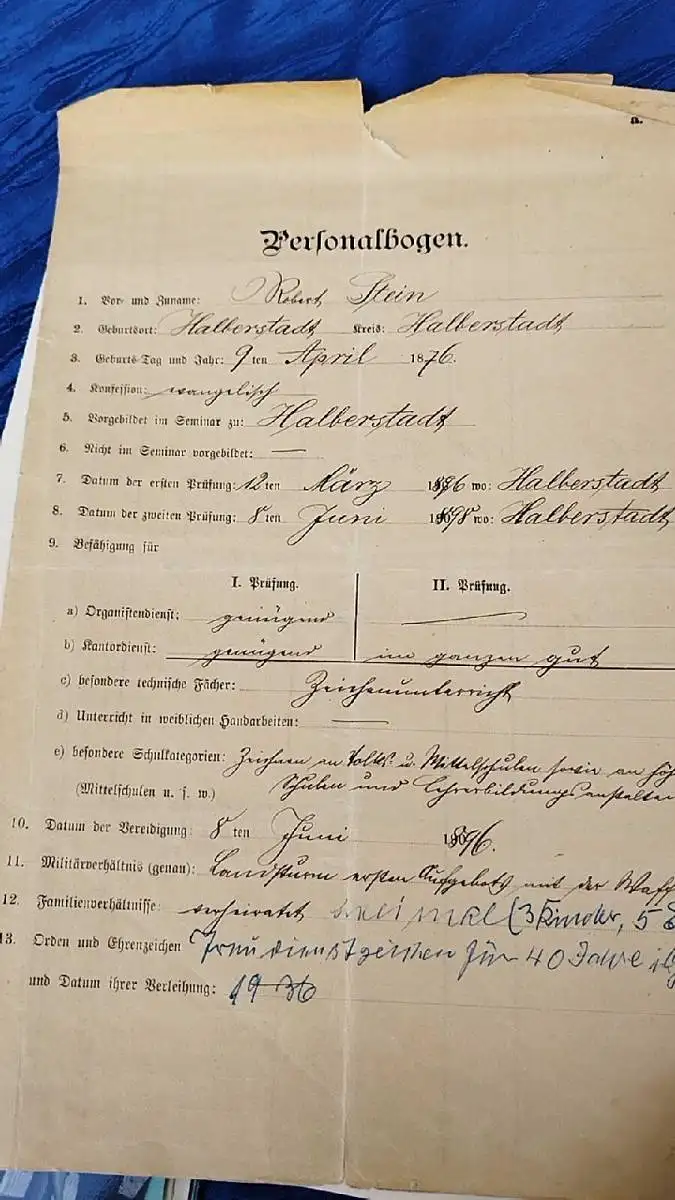 a.
Personalbogen.
1. Vor- und Zuname: Robert Stein
2. Geburtsort: Halberstadt Kreis: Halberstadt
3. Geburts-Tag und Jahr: 9ten April 1876.
4. Konfession: evangelisch
5. Vorgebildet im Seminar zu: Halberstadt
6. Nicht im Seminar vorgebildet: —
7. Datum der ersten Prüfung: 12ten März 1896 wo: Halberstadt
8. Datum der zweiten Prüfung: 8ten Juni 1898 wo: Halberstadt
9. Befähigung für
I. Prüfung. II. Prüfung.
a) Organistendienst: genügend —
b) Kantordienst: genügend im ganzen gut
c) besondere technische Fächer: Zeichenunterricht
d) Unterricht in weiblichen Handarbeiten: —
e) besondere Schulkategorien: Zeichnen an Volks- u. Mittelschulen sowie an höh
(Mittelschulen u. s. w.) Schulen und Lehrerbildungsanstalten
10. Datum der Vereidigung: 8ten Juni 1896.
11. Militärverhältnis (genau): Landsturm ersten Aufgebots mit der Waff
12. Familienverhältnisse: verheiratet (3 Kinder, 5
13. Orden und Ehrenzeichen Treudienstzeichen für 40 Jahre
und Datum ihrer Verleihung: 1936